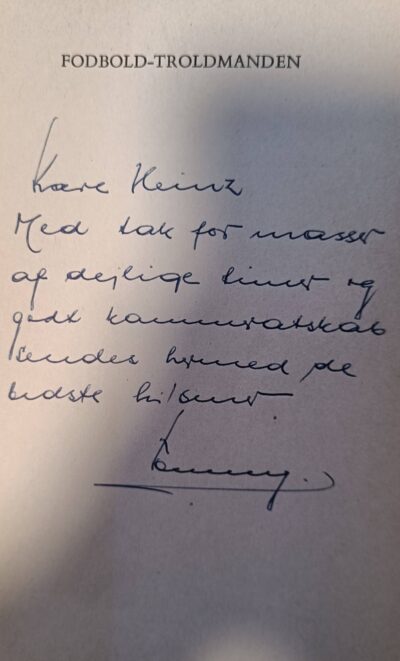 FODBOLD-TROLDMANDEN
Kære Heinz
Med tak for masser
af dejlige timer og
godt kammeratskab
sendes hermed de
bedste hilsner
Tommy.